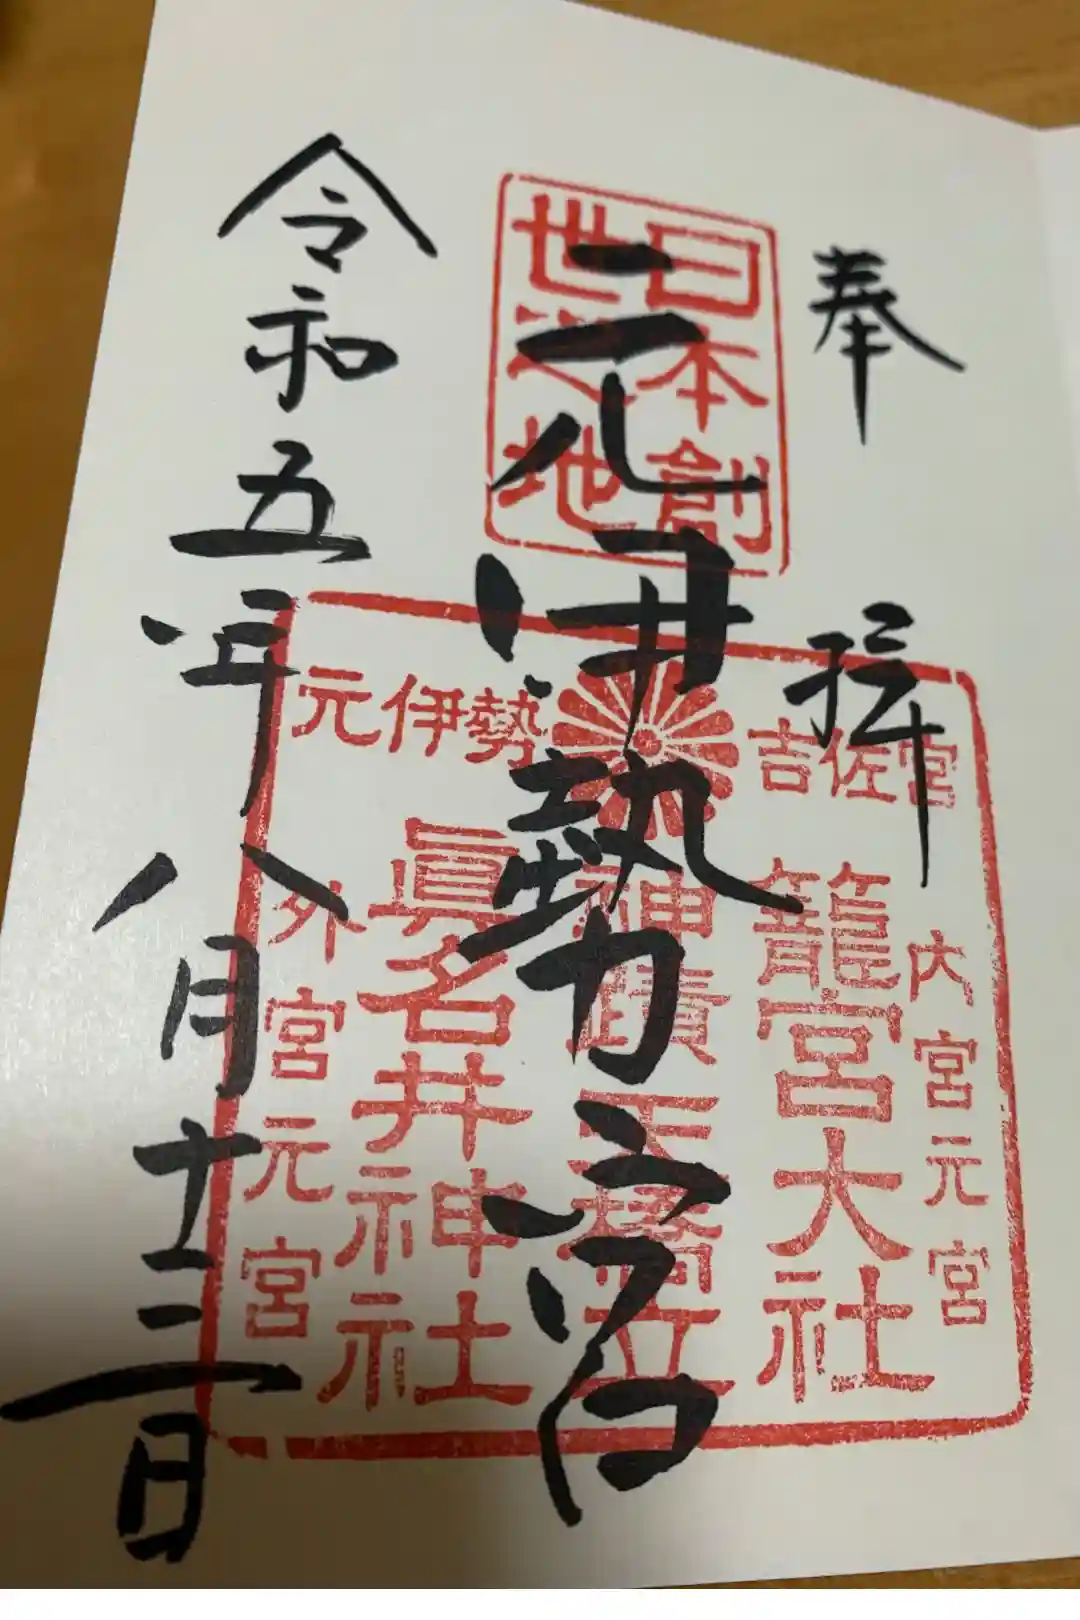 奉拝
日本創
世之地
元伊勢宮
令和五年八月十三日
吉佐宮
元伊勢
内宮元宮
籠宮大社
神蹟天橋立
眞名井神社
外宮元宮